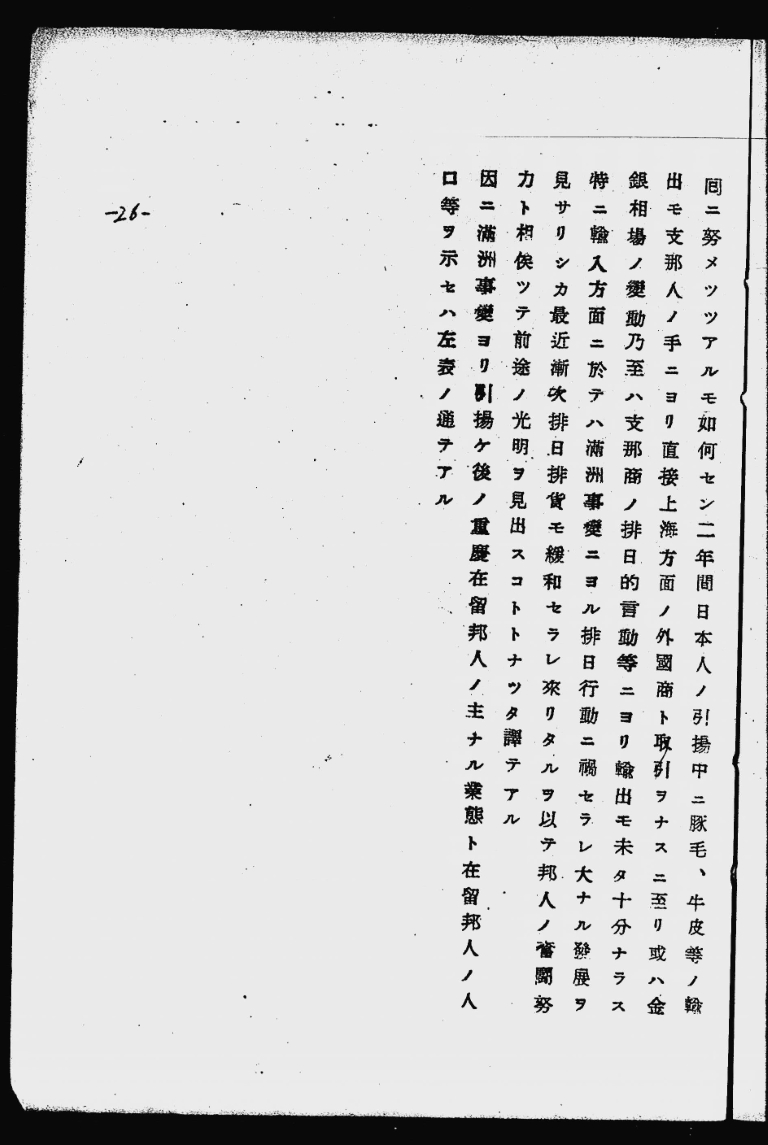 回ニ努メツツアルモ如何セン二年間日本人ノ引揚中ニ豚毛、牛皮等ノ輸
出モ支那人ノ手ニヨリ直接上海方面ノ外國商ト取引ヲナスニ至リ或ハ金
銀相場ノ變動乃至ハ支那商ノ排日的言動等ニヨリ輸出モ未タ十分ナラス
特ニ輸入方面ニ於テハ滿洲事變ニヨル排日行動ニ禍セラレ大ナル發展ヲ
見サリシカ最近漸次排日排貨モ緩和セラレ來リタルヲ以テ邦人ノ奮鬪努
力ト相俟ツテ前途ノ光明ヲ見出スコトトナツタ譯テアル
因ニ滿洲事變ヨリ引揚ケ後ノ重慶在留邦人ノ主ナル業態ト在留邦人ノ人
口等ヲ示セハ左表ノ通テアル
-26-